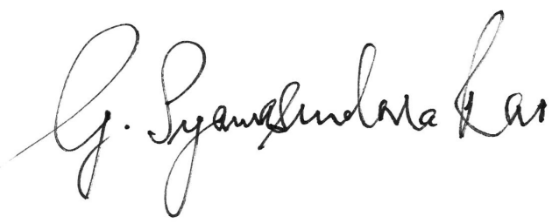 G. Syamasundara Rao